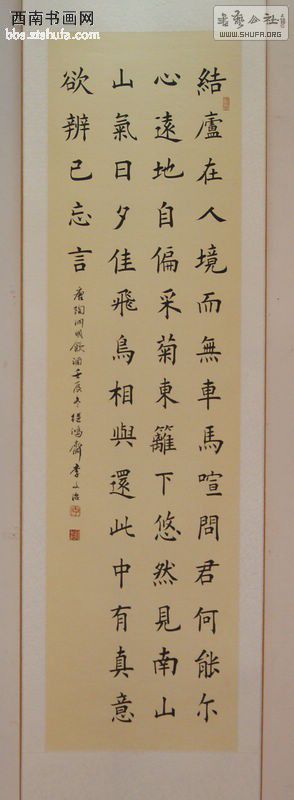 西南书画网
bbs.xtshufa.com
书艺公社
WWW.SHUFA.ORG
結廬在人境而無車馬喧問君何能尔
心遠地自偏采菊東籬下悠然見南山
山氣日夕佳飛鳥相與還此中有真意
欲辨已忘言
唐陶渊明飲酒壬辰冬 鴻齋李文治